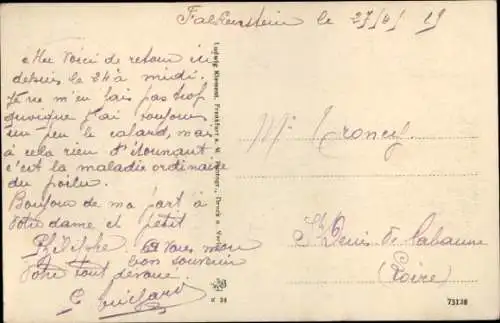 Falkenstein le 27/4/19
Me voici de retour ici
depuis le 24 à midi.
Je ne m'en fais pas trop
quoique j'ai toujours
un peu le cafard, mais
à cela rien d'étonnant
c'est la maladie ordinaire
du poilu.
Bonjour de ma part à
votre dame et petit
Philippe. à vous mon
bon souvenir
Votre tout dévoué.
Ludwig Klement, Frankfurt a. M.
Mr Troncy
St Denis de Cabanne
(Loire)
K 26
75128